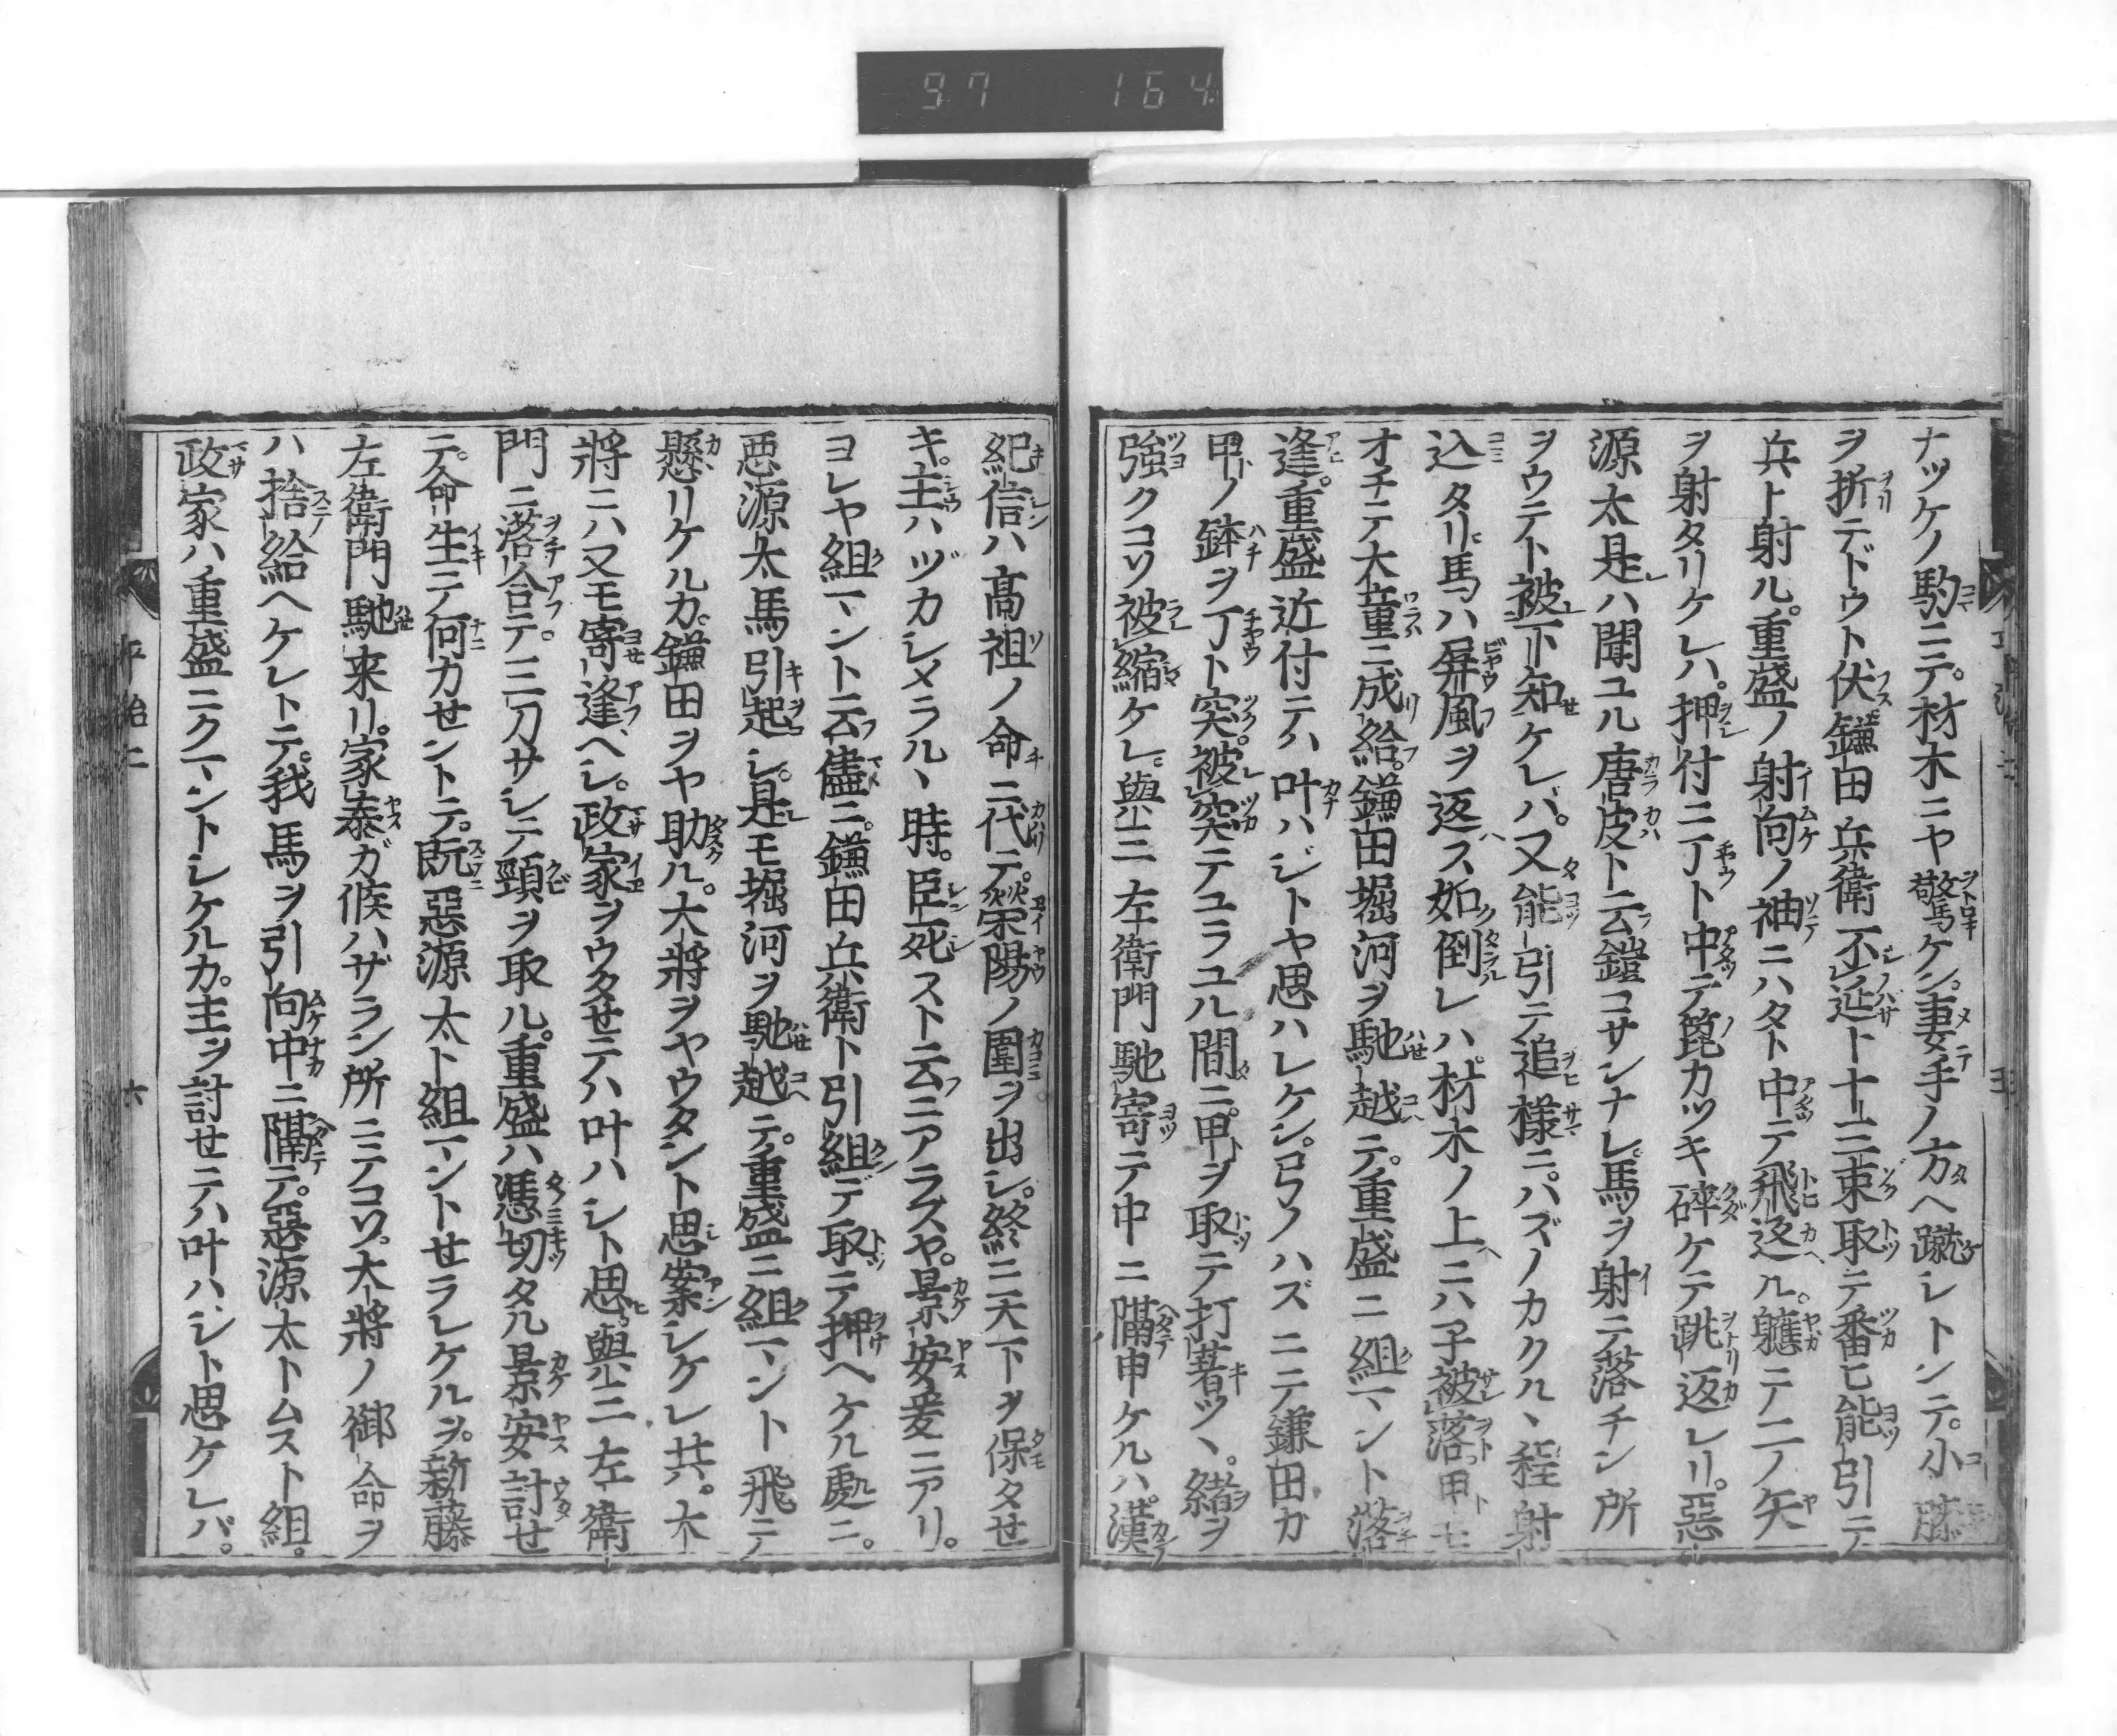 97 164
ナツケノ駒ニテ。材木ニヤ驚ケン。妻手ノ方ヘ蹴レトンテ。小膝
ヲ折テドウト伏鎌田兵衛不延ト十三束取テ番ヒ能引テ
兵ト射ル。重盛ノ射向ノ袖ニハタト中テ飛返ル。軈テ二ノ矢
ヲ射タリケレハ。押付ニ丁ト中テ箆カツキ碎ケテ跳返レリ。惡
源太是ハ聞ユル唐皮ト云鎧コサンナレ。馬ヲ射テ落チン所
ヲウテト被下知ケレバ。又能引テ追様ニ。ハズノカクルヽ程射
込タリ。馬ハ屏風ヲ返ス如倒レハ。材木ノ上ニハ子被落甲モ
オチテ大童ニ成給フ。鎌田堀河ヲ馳越テ。重盛ニ組マント落
逢。重盛近付テハ叶ハジトヤ思ハレケン。弓ノハズニテ鎌田カ
甲ノ鉢ヲ丁ト突。被突テユラユル間ニ。甲ヲ取テ打著ツヽ。緒ヲ
強クコソ被縮ケレ。與三左衛門馳寄テ中ニ隔申ケルハ。漢
紀信ハ髙祖ノ命ニ代テ。滎陽ノ圍ヲ出シ。終ニ天下ヲ保タせ
キ。主ハヅカシメラルヽ時。臣死スト云ニアラスヤ。景安爰ニアリ。
ヨレヤ組マント云儘ニ。鎌田兵衛ト引組デ取テ押ヘケル處ニ。
悪源太馬引起シ。是モ堀河ヲ馳越テ。重盛ニ組マント飛テ
懸リケルカ。鎌田ヲヤ助ル。大將ヲヤウタント思案シケレ共。大
將ニハ又モ寄逢ヘシ。政家ヲウタせテハ叶ハシト思。與三左衛
門ニ落合テ。三刀サシテ頸ヲ取ル。重盛ハ憑切タル景安討せ
テ。命生テ何カせントテ。既惡源太ト組マントせラレケルヲ。新藤
左衛門馳来リ。家泰ガ候ハザラン所ニテコソ。大將ノ御命ヲ
ハ捨給ヘケレトテ。我馬ヲ引向中ニ隔テ。惡源太トムスト組。
政家ハ重盛ニクマントシケルカ。主ヲ討せテハ叶ハシト思ケレバ。
平治二
六